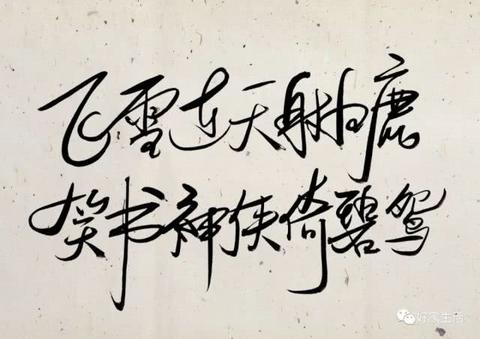 飞雪连天射白鹿
笑书神侠倚碧鸳
好家生活